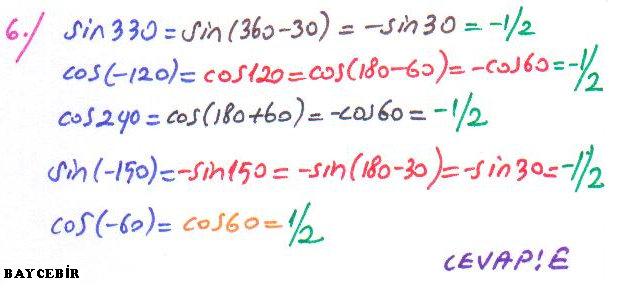 6./ sin330=sin(360-30)=-sin30=-1/2
cos(-120)=cos120=cos(180-60)=-cos60=-1/2
cos240=cos(180+60)=-cos60=-1/2
sin(-150)=-sin150=-sin(180-30)=-sin30=-1/2
cos(-60)=cos60=1/2
CEVAP!E
BAYCEBİR